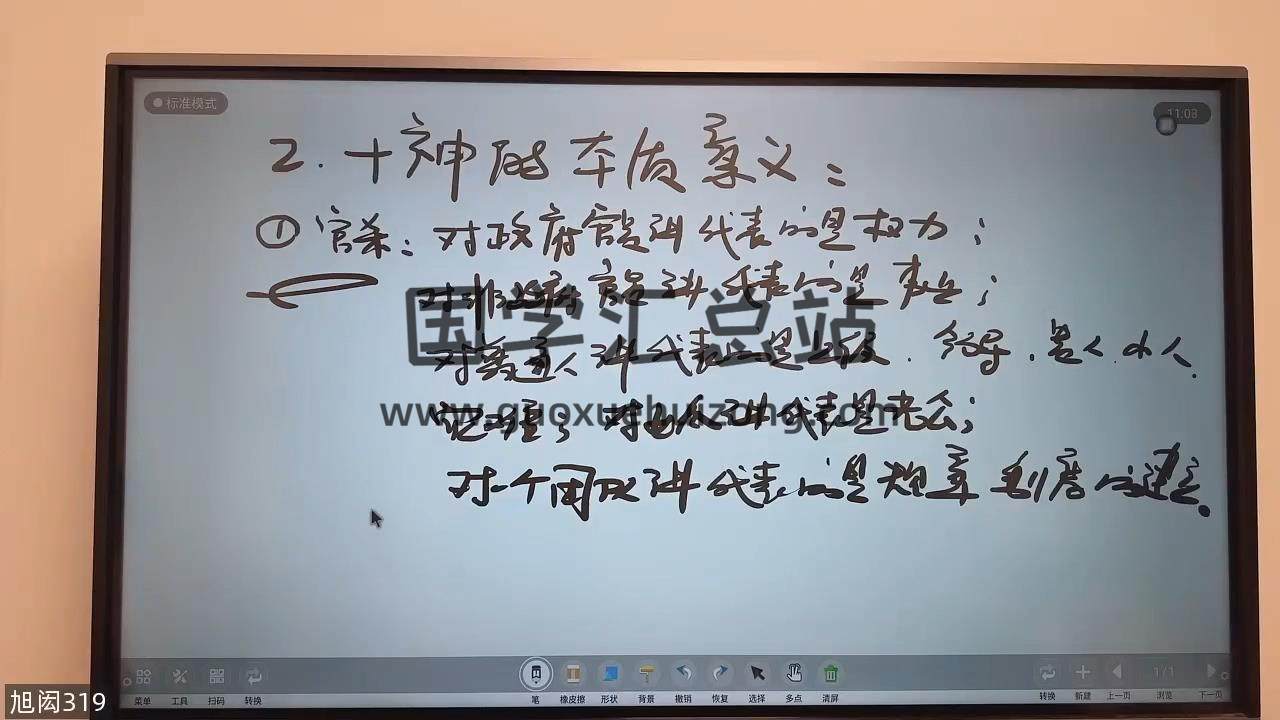 标准模式
11:03
2. 十神的本质意义：
① 官杀：对政府官员讲代表的是权力；
对非政府官员讲代表的是事业；
国学汇总站
对普通人讲代表的是上级、领导、贵人、小人、
www.guoxuehuizong.com
对女人讲代表是老公；
对一个国家讲代表的是规章制度的建立。
菜单 工具 扫码 转换 笔 橡皮擦 形状 背景 撤销 恢复 选择 多点 清屏 转换 新建 上一页 1/1 浏览 下一页
旭闳319